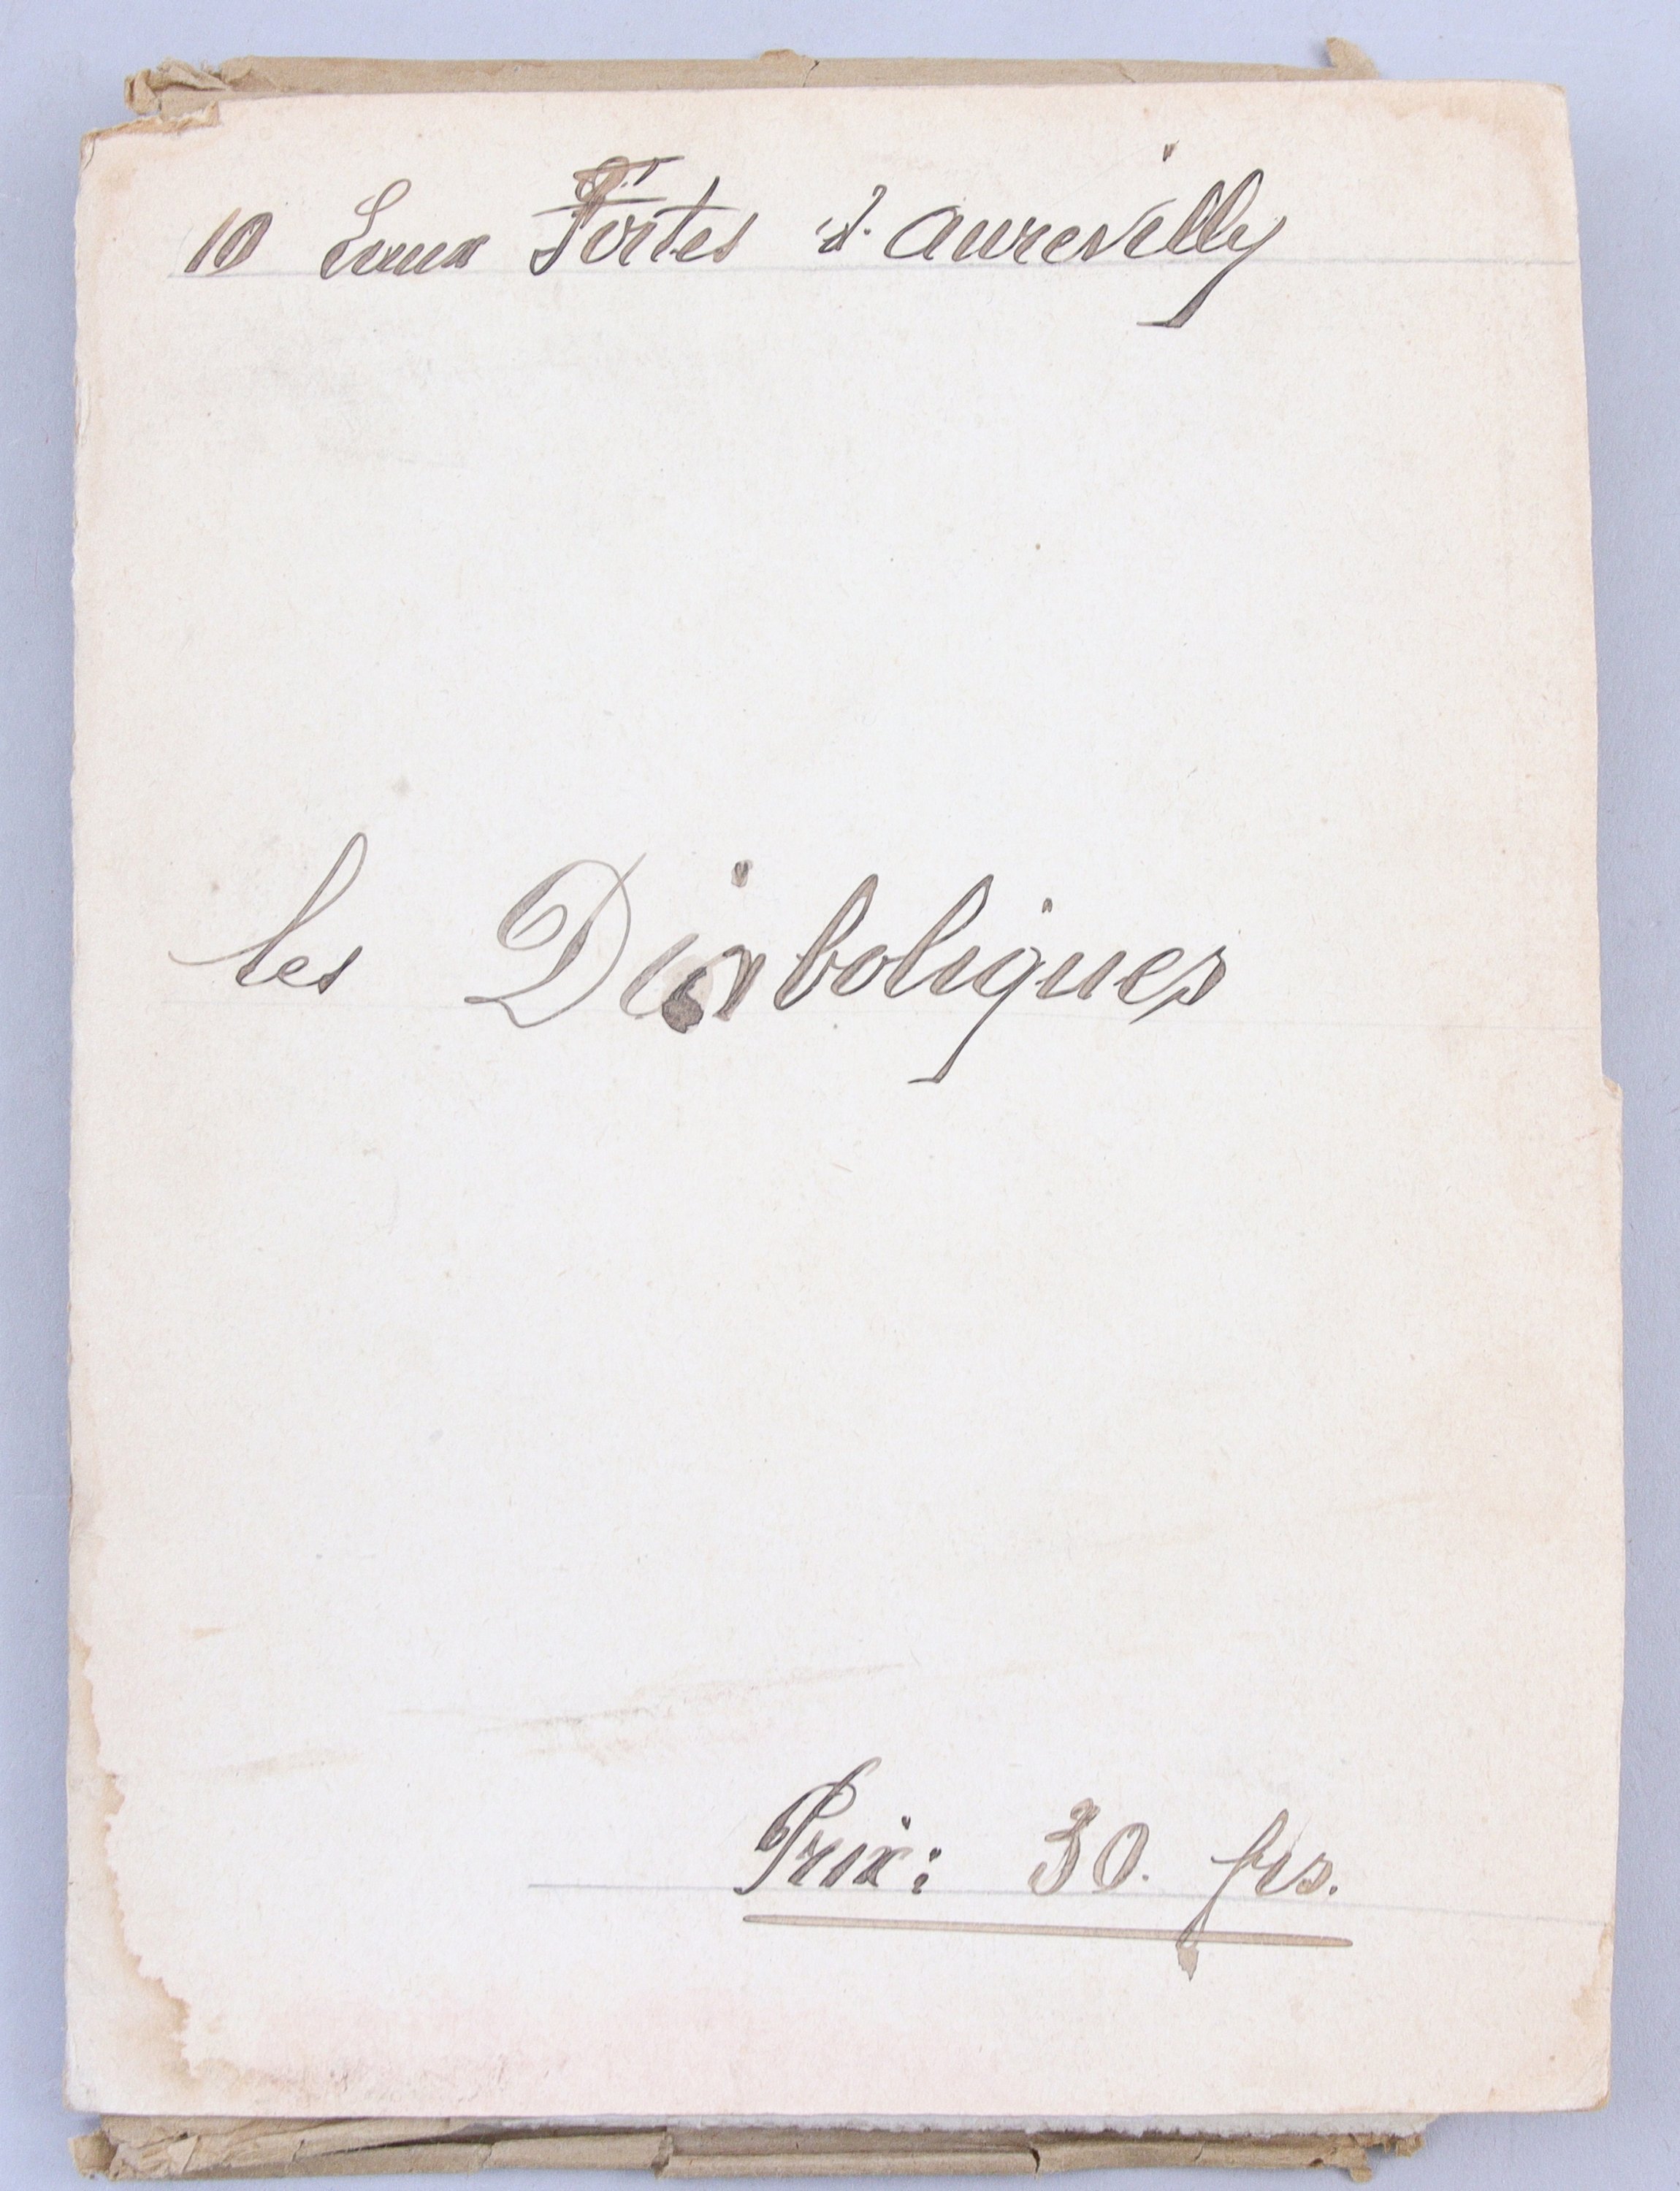 10 Eaux Fortes d. Aurevilly
les Diaboliques
Prix: 30. frs.